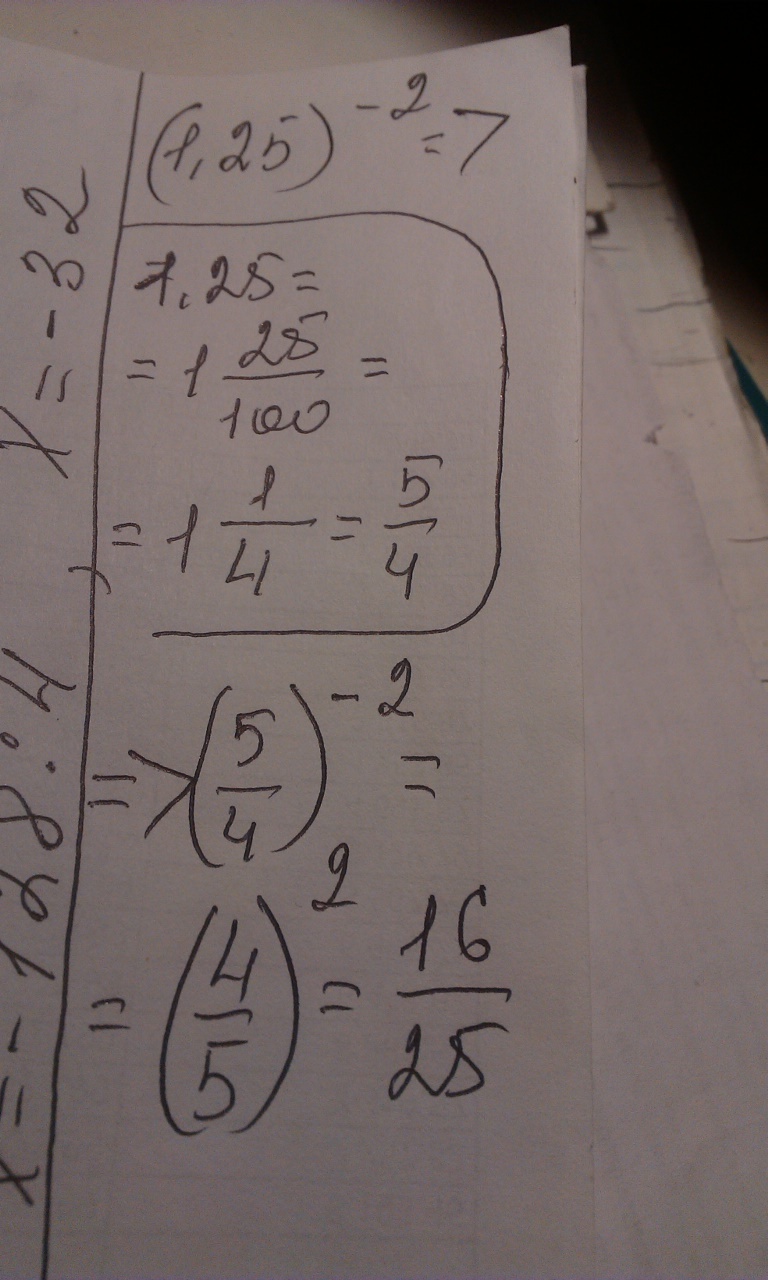 (1,25)^-2 = 7
1,25 =
= 1 25/100 =
= 1 1/4 = 5/4
=> (5/4)^-2 =
= (4/5)^2 = 16/25
x = -128 : 4
x = -32